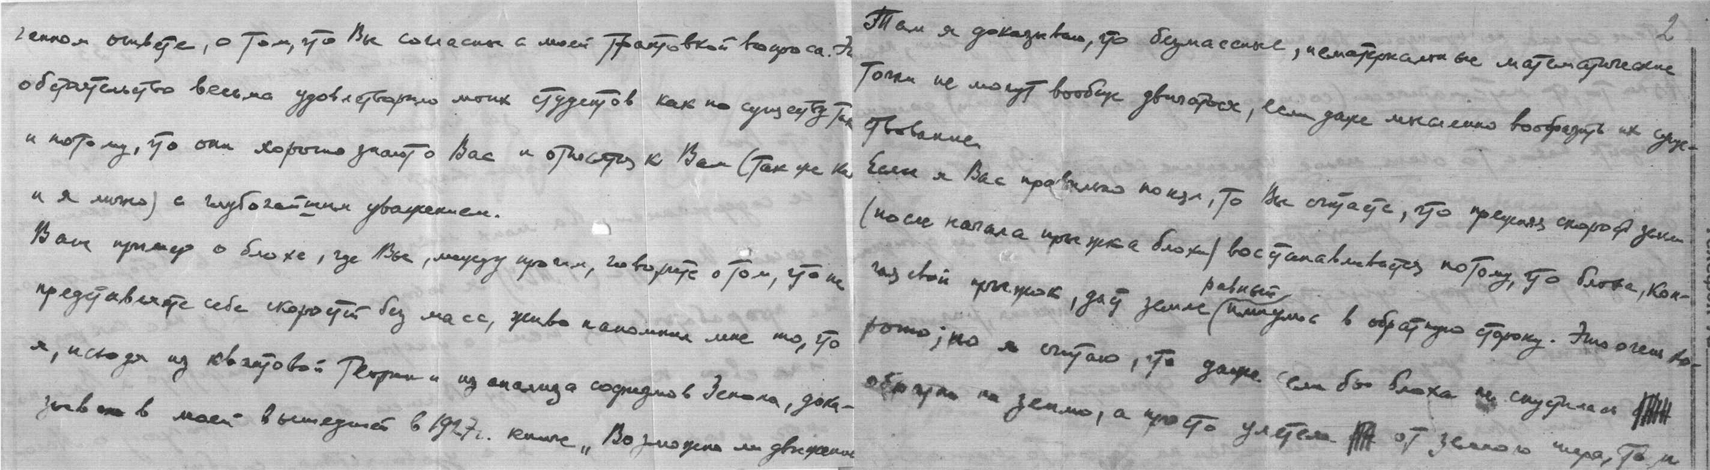 ченном ответе, о том, что Вы согласны с моей трактовкой вопроса. Это
обстоятельство весьма удовлетворило моих студентов как по существу, так
и потому, что они хорошо знают о Вас и относятся к Вам (так же как
и я лично) с глубочайшим уважением.
Ваш пример о блохе, где Вы, между прочим, говорите о том, что не
представляете себе скоростей без масс, живо напомнил мне то, что
я, исходя из квантовой теории и из анализа софизмов Зенона, дока-
зываю в моей вышедшей в 1927 г. книге „Возможно ли движение
2
Там я доказываю, что безмассные, нематериальные математические
точки не могут вообще двигаться, если даже мысленно вообразить их суще-
ствование.
Если я Вас правильно понял, то Вы считаете, что прежняя скорость земли
(после начала прыжка блохи) восстанавливается потому, что блоха, кон-
чая свой прыжок, даст земле равный импульс в обратную сторону. Это очень хо-
рошо; но я считаю, что даже если бы блоха не спустилась
обратно на землю, а просто улетела от земного шара, то и